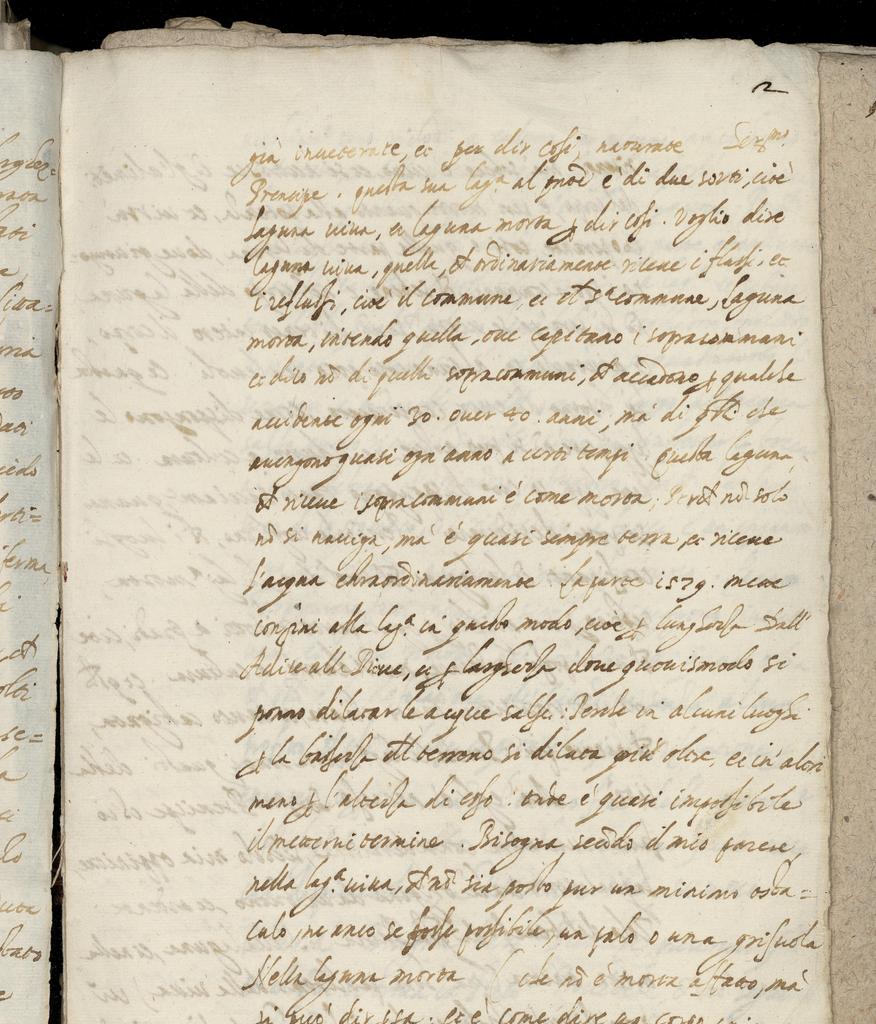 2
già inveterate, et per dir cosi, naturate Ser.mo
Prencipe. questa sua lag.a al pnte è di due sorti, cioè
laguna viva, et laguna morta p dir cosi. Voglio dire
laguna viva, quella, ch ordinariamente riceve i flussi, et
i reflussi, cioe il commune, et il s.a commune, laguna
morta, intendo quella, ove capitano i sopracommuni
et dico nō di quelli sopracommuni, ch accadono p qualche
accidente ogni 30. over 40. anni, mà di qlli che
avengono quasi ogn'anno a certi tempi. Questa laguna,
ch riceve i sopracommuni è come morta, Perch nō solo
nō si naviga, mà è quasi sempre terra, et riceve
l'acqua extraordinariamente. La parte 1579. mette
confini alla lag.a in questo modo, cioè p lunghezza dall'
Adice alla Piave, et p larghezza dove quovismodo si
ponno dilatar le acque salse. Perche in alcuni luoghi
p la bassezza dl terreno si dilata più oltre, et in altri
meno p l'altezza di esso: onde è quasi impossibile
il mettervi termine. Bisogna secōdo il mio parere,
nella lag.a viva, ch nō sia posto pur un minimo osta=
culo, ne anco se fosse possibile, un palo o una grisuola
Nella laguna morta (che nō è morta affatto, mà
si può dir essa. et è come dire un corpo